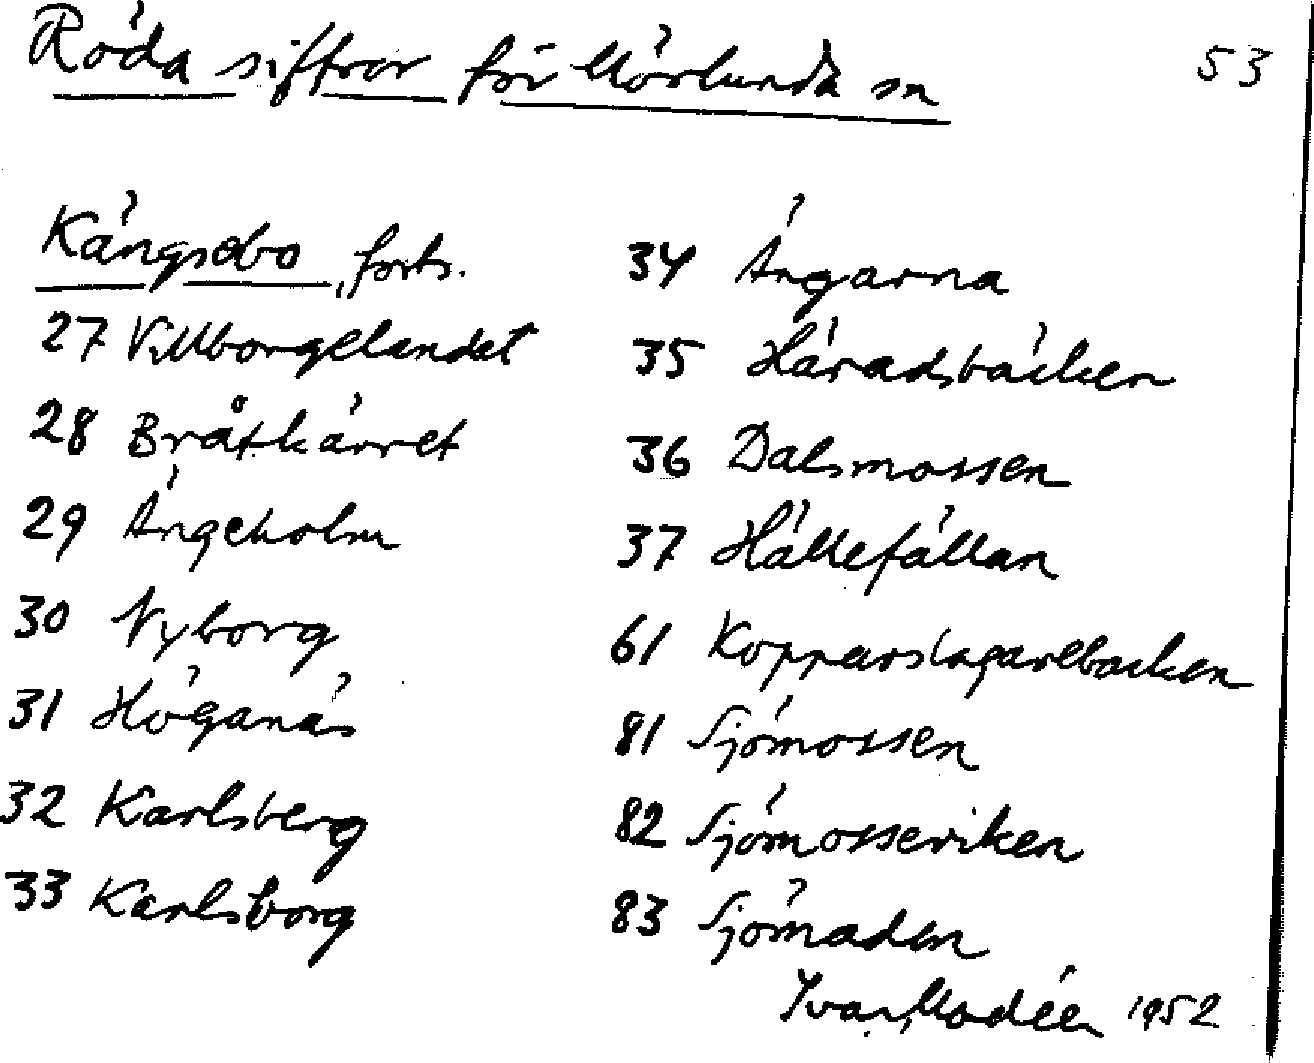 Röda siffror för Mörlunda sn
53
Kängsebo, forts.
27 Villborgelandet
28 Bråtkärret
29 Ängeholm
30 Nyborg
31 Höganäs
32 Karlsberg
33 Karlsborg
34 Ängarna
35 Häradsbäcken
36 Dalsmossen
37 Hällefällan
61 Kopparslagarebacken
81 Sjömossen
82 Sjömosseviken
83 Sjömaden
Ivar Modéer 1952